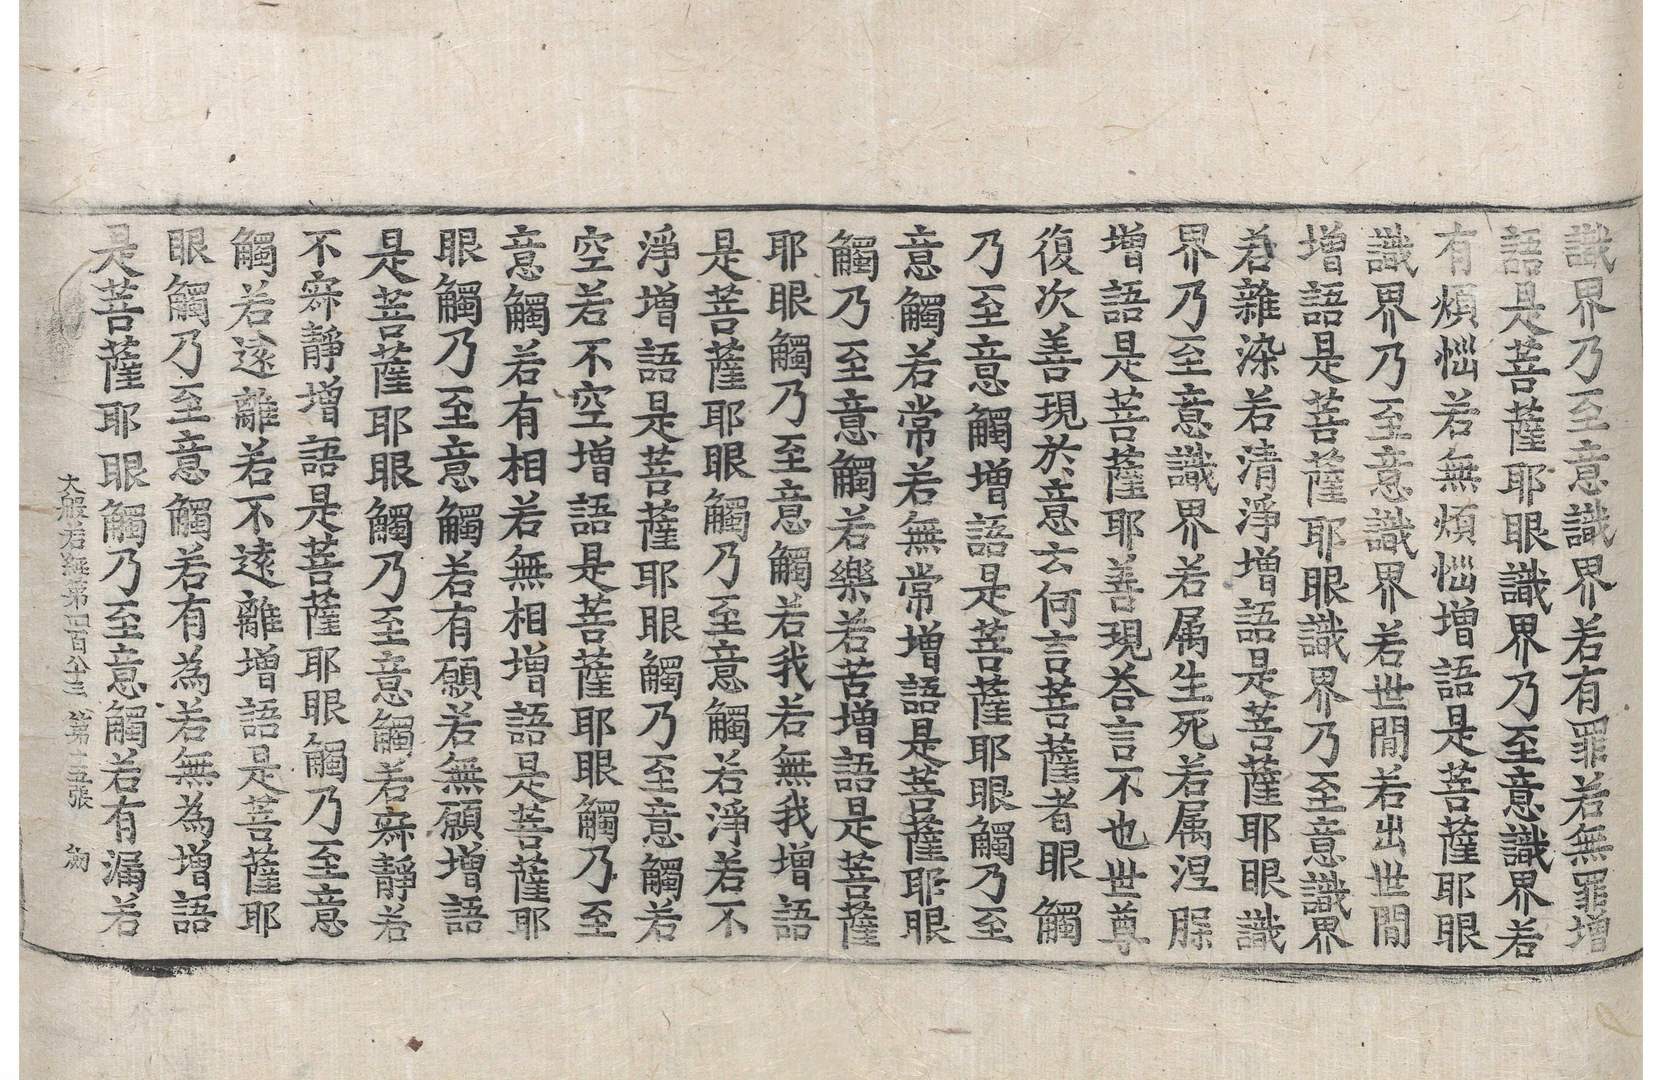 識界乃至意識界若有罪若無罪增
語是菩薩耶眼識界乃至意識界若
有煩惱若無煩惱增語是菩薩耶眼
識界乃至意識界若世間若出世間
增語是菩薩耶眼識界乃至意識界
若雜染若清淨增語是菩薩耶眼識
界乃至意識界若属生死若属涅槃
增語是菩薩耶善現荅言不也世尊
復次善現於意云何言菩薩者眼觸
乃至意觸增語是菩薩耶眼觸乃至
意觸若常若無常增語是菩薩耶眼
觸乃至意觸若樂若苦增語是菩薩
耶眼觸乃至意觸若我若無我增語
是菩薩耶眼觸乃至意觸若淨若不
淨增語是菩薩耶眼觸乃至意觸若
空若不空增語是菩薩耶眼觸乃至
意觸若有相若無相增語是菩薩耶
眼觸乃至意觸若有願若無願增語
是菩薩耶眼觸乃至意觸若寂靜若
不寂靜增語是菩薩耶眼觸乃至意
觸若遠離若不遠離增語是菩薩耶
眼觸乃至意觸若有為若無為增語
是菩薩耶眼觸乃至意觸若有漏若
大般若經第四百八十三 第十五張